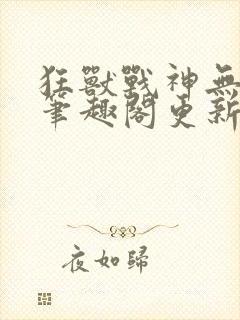 狂獸戰神無
筆趣閣更新
夜如歸